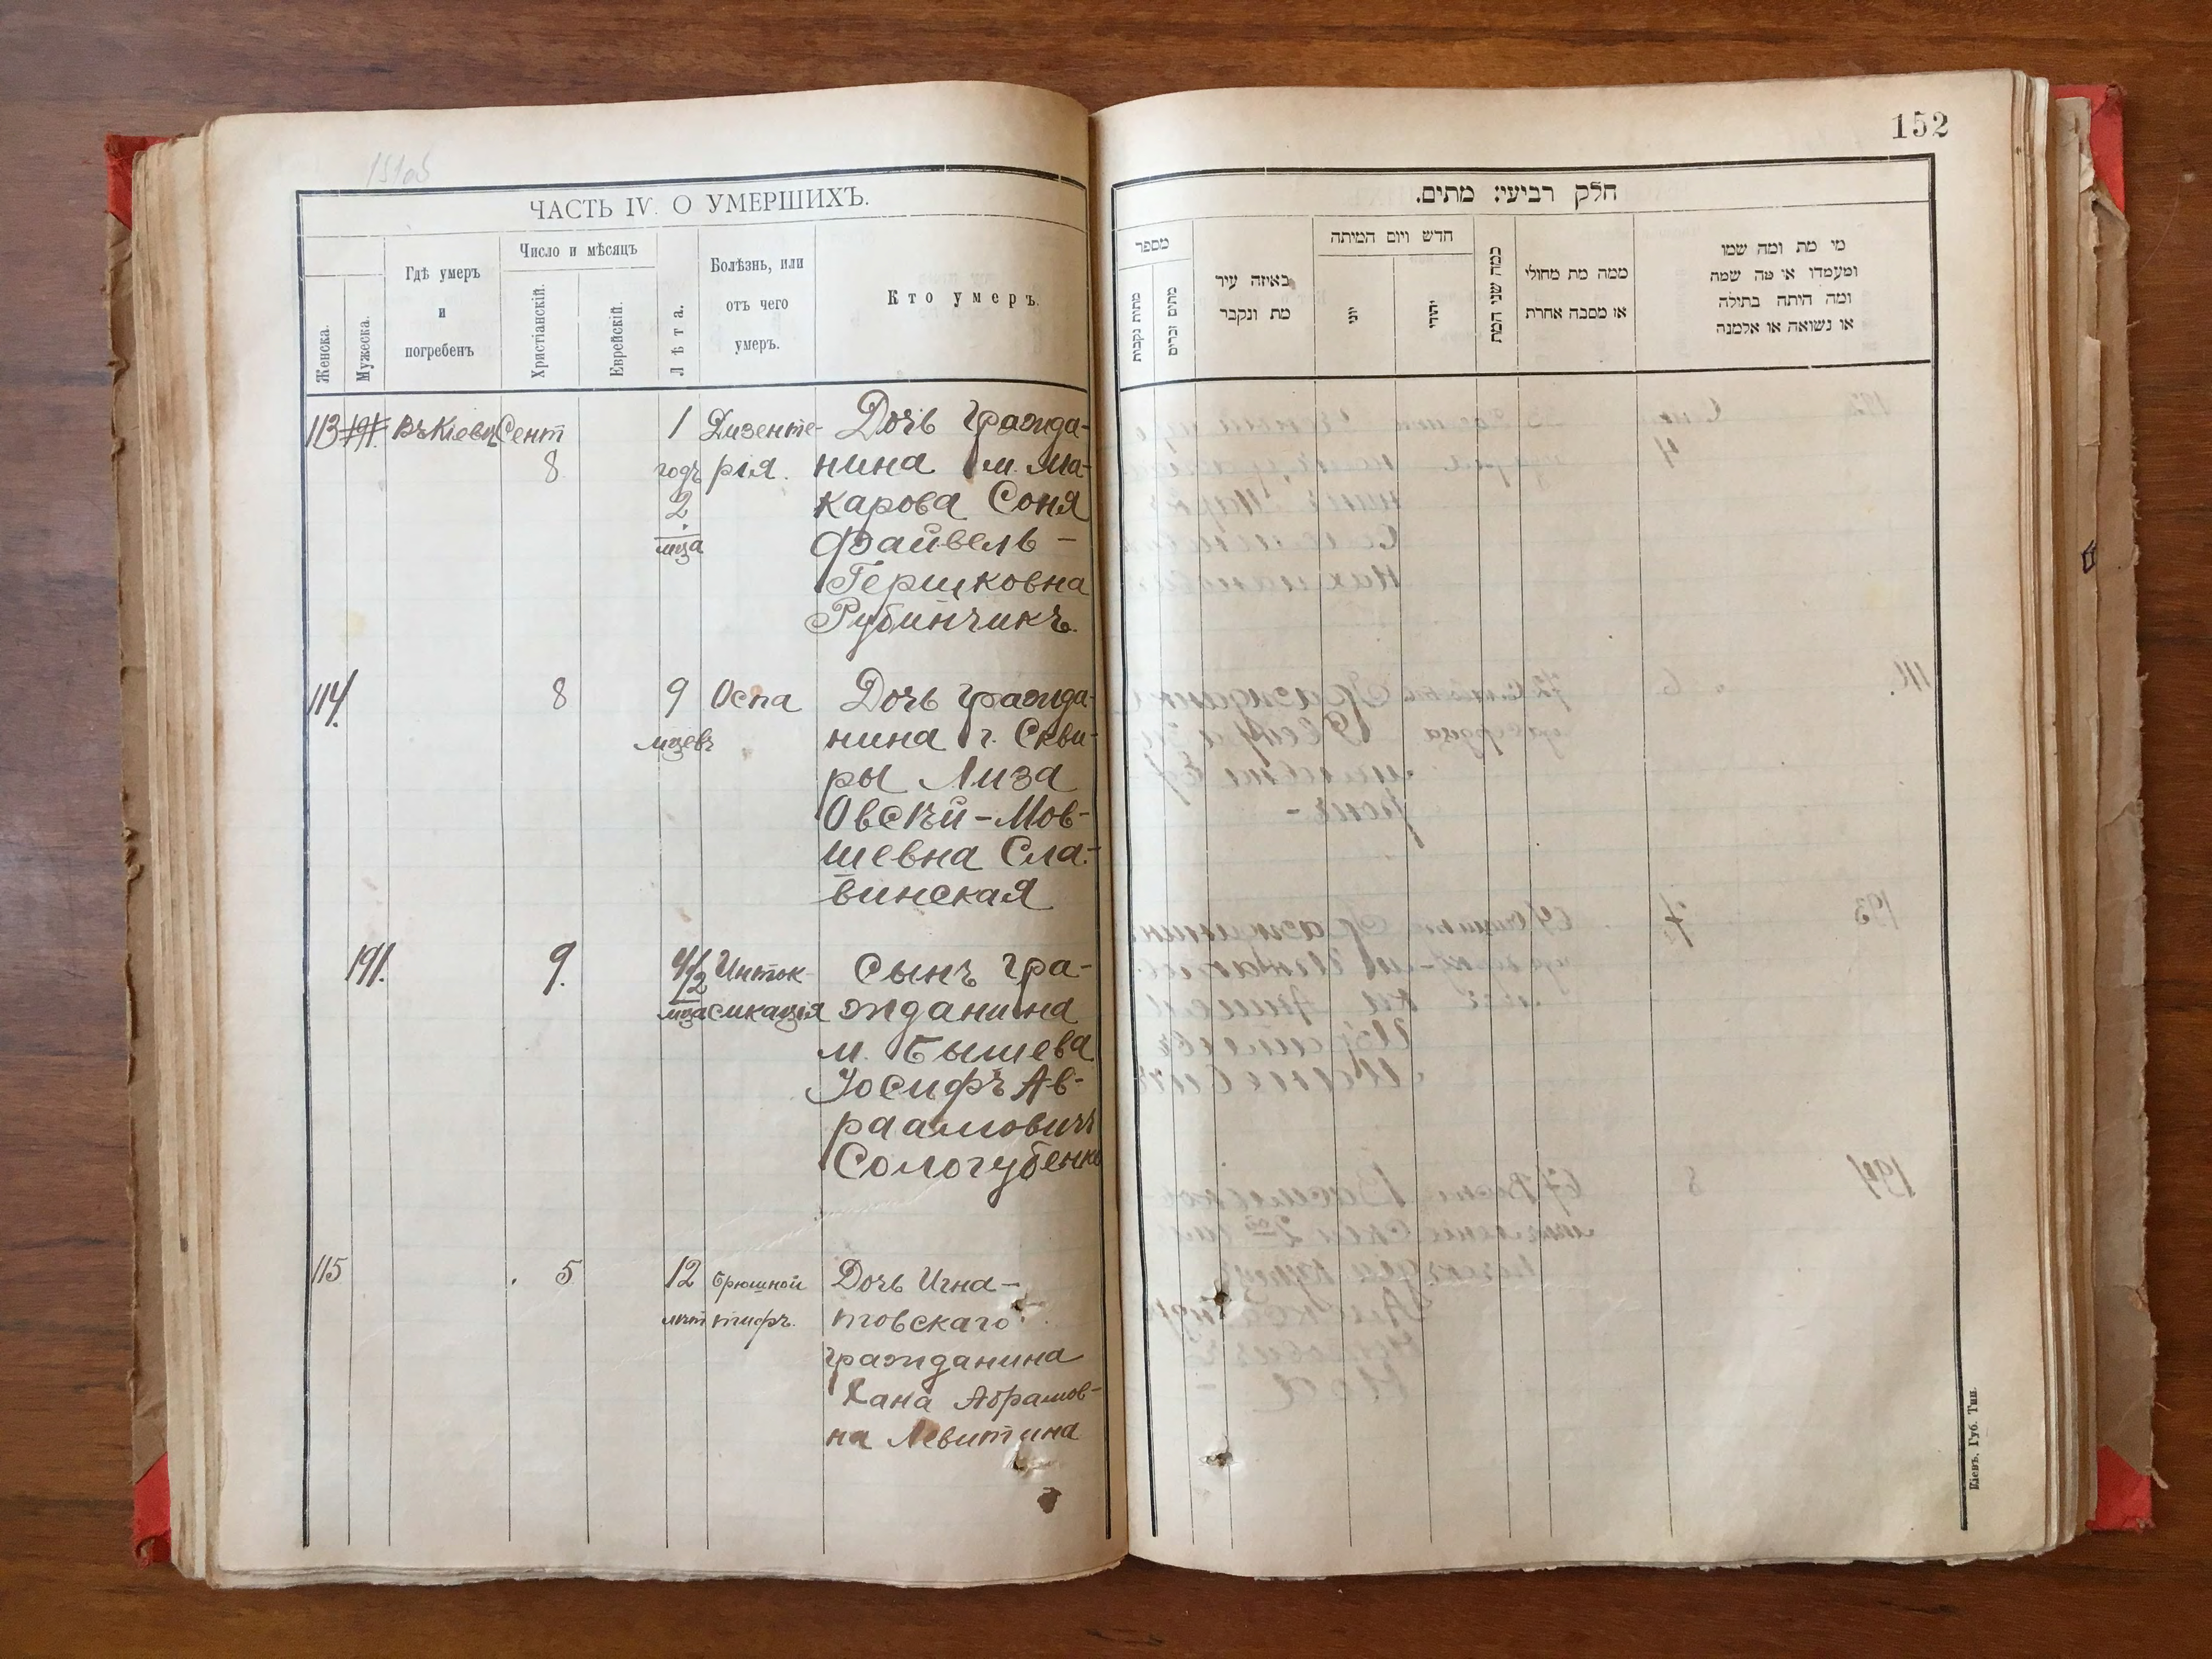 151об
ЧАСТЬ IV. О УМЕРШИХЪ.
Женска.
Мужеска.
Гдѣ умеръ
и
погребенъ
Число и мѣсяцъ
Христіанскій.
Еврейскій.
Лѣта.
Болѣзнь, или
отъ чего
умеръ.
Кто умеръ.
113 191 Въ Кіевѣ Сент 1 Дизенте- Дочь гражда-
8 годъ рія. нина м. Ма-
2 карова Соня
мца Файвель-
Гершковна
Рубинчикъ.
114. 8 9 Оспа Дочь гражда-
мцевъ нина г. Скви-
ры Лиза
Овсѣй-Мов-
шевна Сла-
винская
191. 9. 4/2 Инток- Сынъ гра-
мца сикація жданина
м. Бышева
Іосифъ Ав-
раамовичъ
Сологубенко
115 5 12 брюшной Дочь Игна-
лѣт тифъ. товскаго
гражданина
Хана Абрамов-
на Левитина
152
חלק רביעי: מתים.
מספר
מתות נקבות
מתים זכרים
באיזה עיר
מת ונקבר
חדש ויום המיתה
יוני
יהודי
כמה שני המת
ממה מת מחולי
או מסבה אחרת
מי מת ומה שמו
ומעמדו או מה שמה
ומה היתה בתולה
או נשואה או אלמנה
Кіевъ, Губ. Тип.